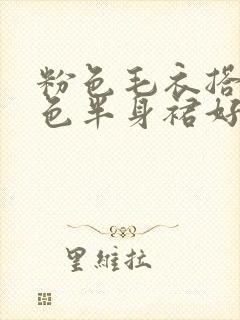 粉色毛衣搭
色半身裙好
里維拉